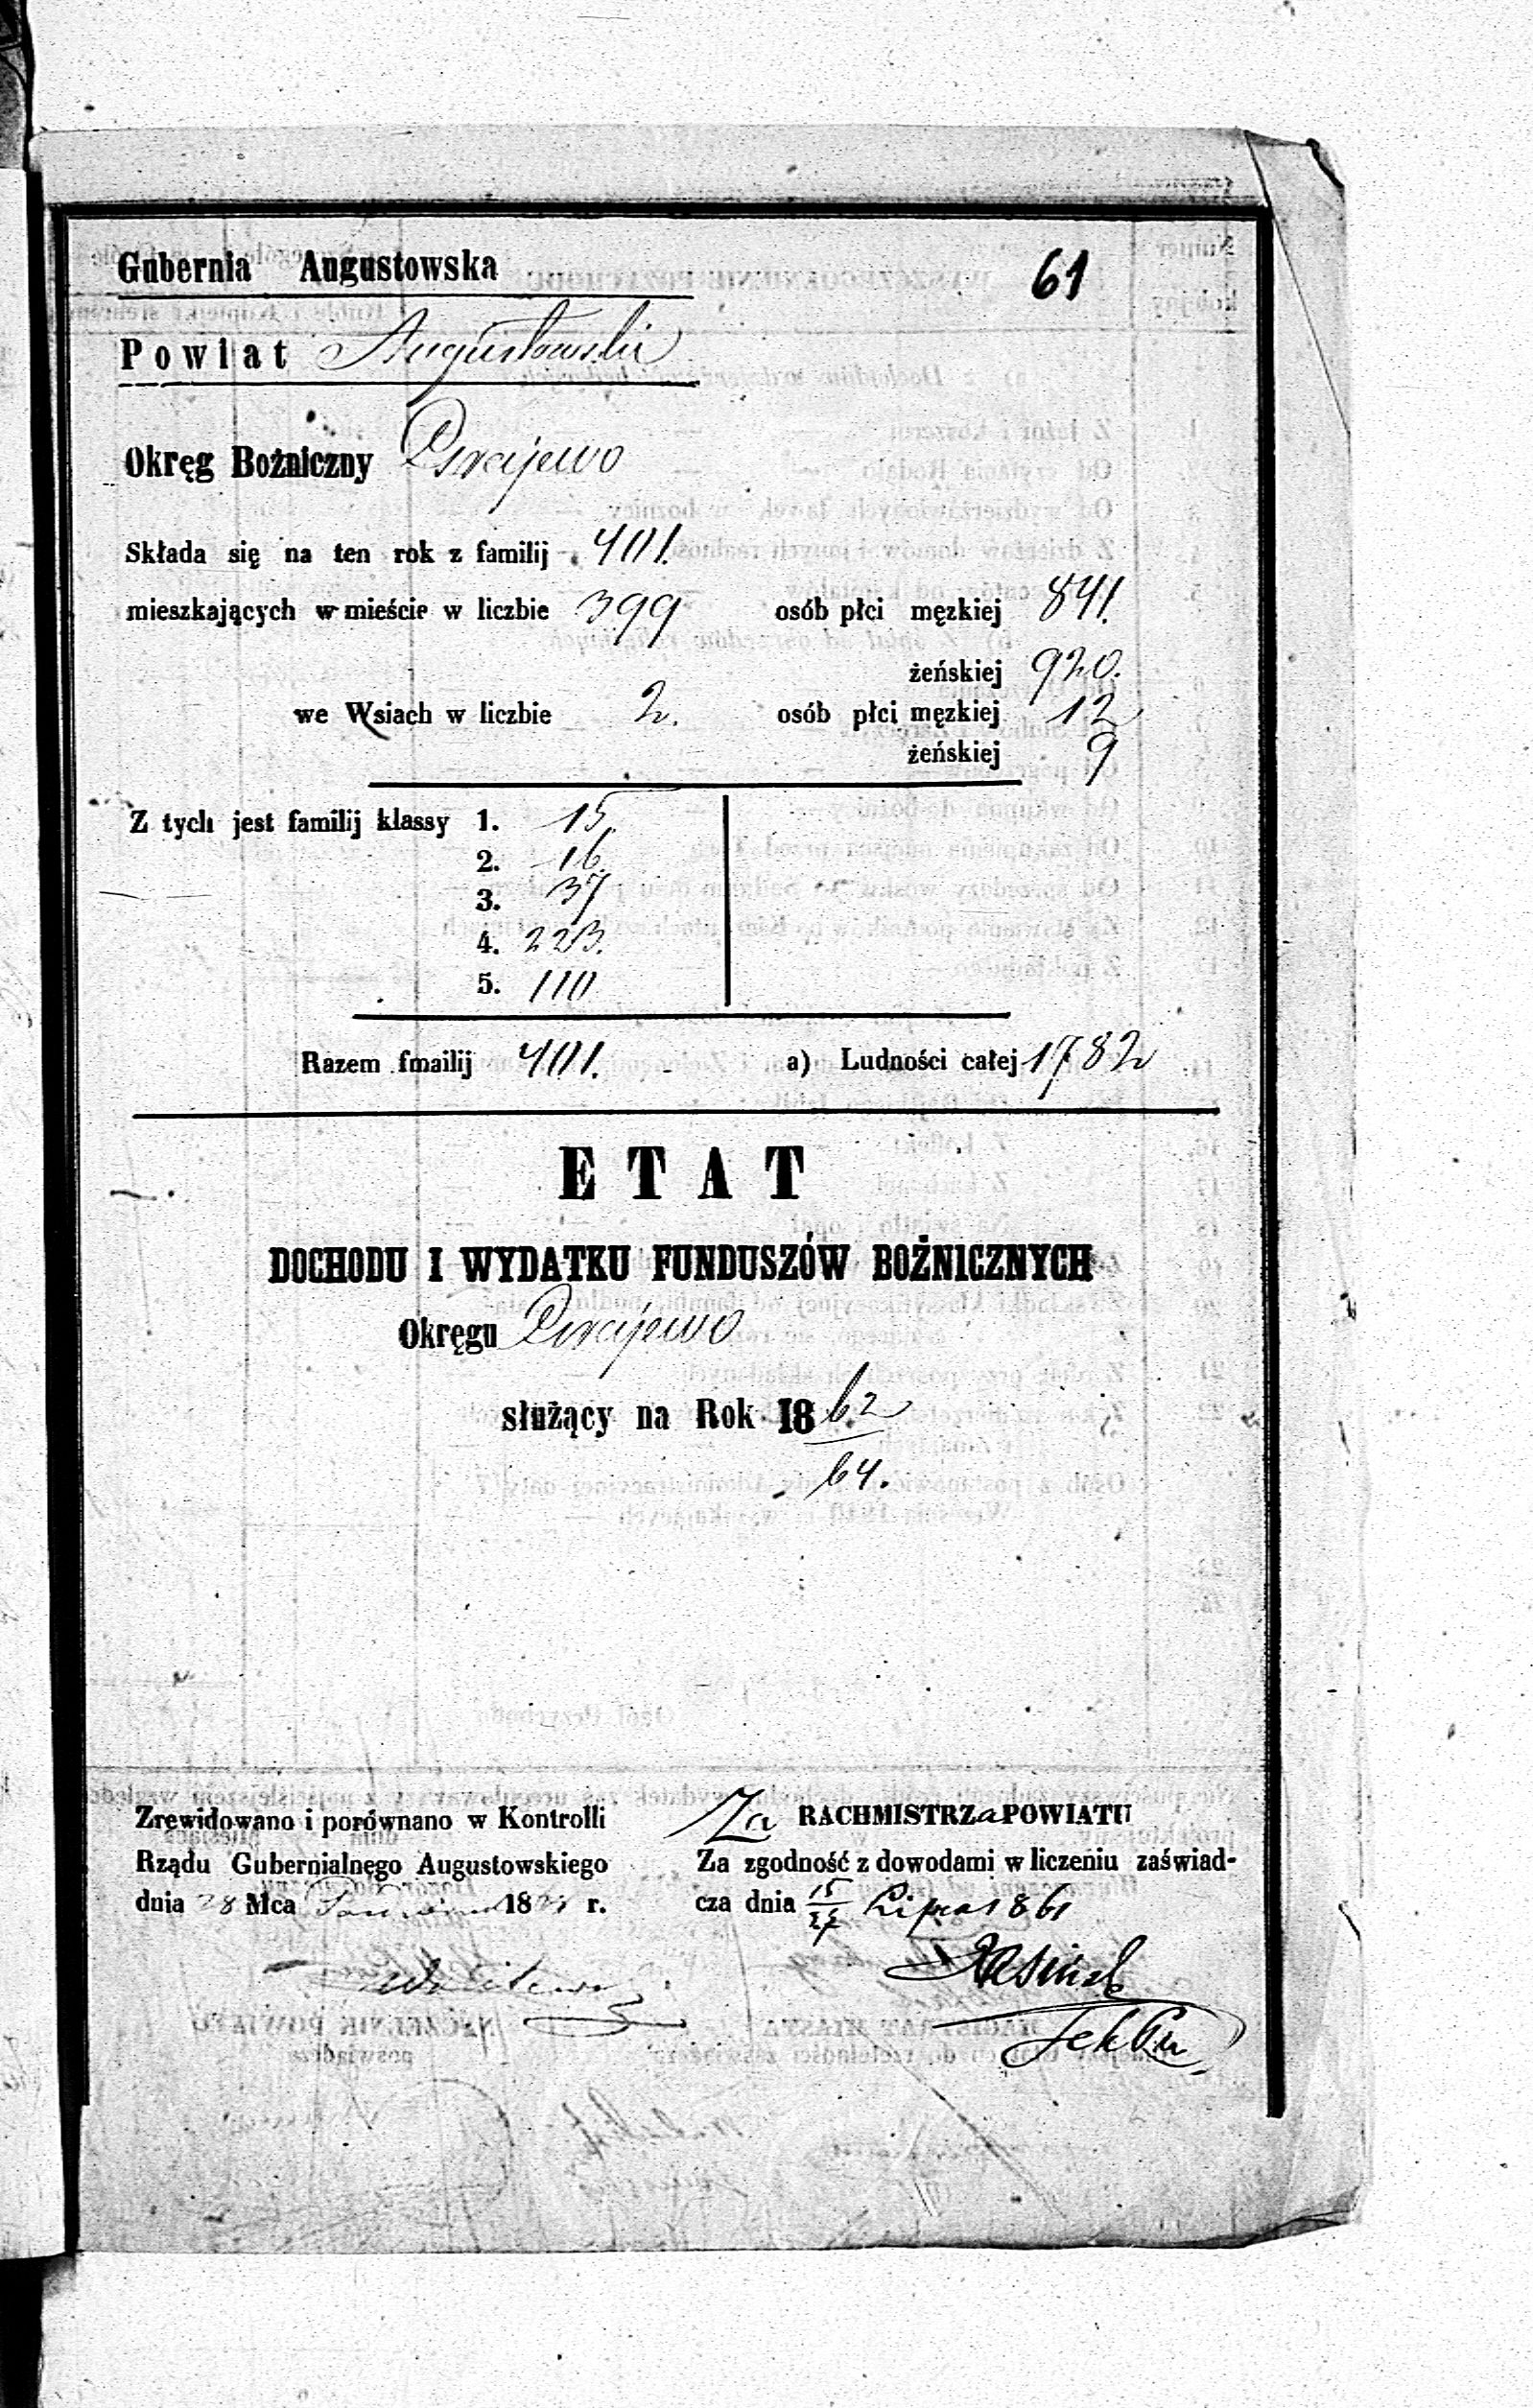 61
Gubernia Augustowska
Powiat Augustowski
Okręg Bożniczny Grajewo
Składa się na ten rok z familij 401.
mieszkających w mieście w liczbie 399 osób płci męzkiej 841.
żeńskiej 920.
we Wsiach w liczbie 2. osób płci męzkiej 12
żeńskiej 9
Z tych jest familij klassy 1. 15.
2. 16.
3. 37
4. 223.
5. 110
Razem fmailij 401. a) Ludności całej 1782
ETAT
DOCHODU I WYDATKU FUNDUSZÓW BOŻNICZNYCH
Okręgu Grajewo
służący na Rok 18 62
64.
Zrewidowano i porównano w Kontrolli
Rządu Gubernialnego Augustowskiego
dnia 28 Mca 18 r.
Za RACHMISTRZa POWIATU
Za zgodność z dowodami w liczeniu zaświad-
cza dnia 15/27 Lipca 1861